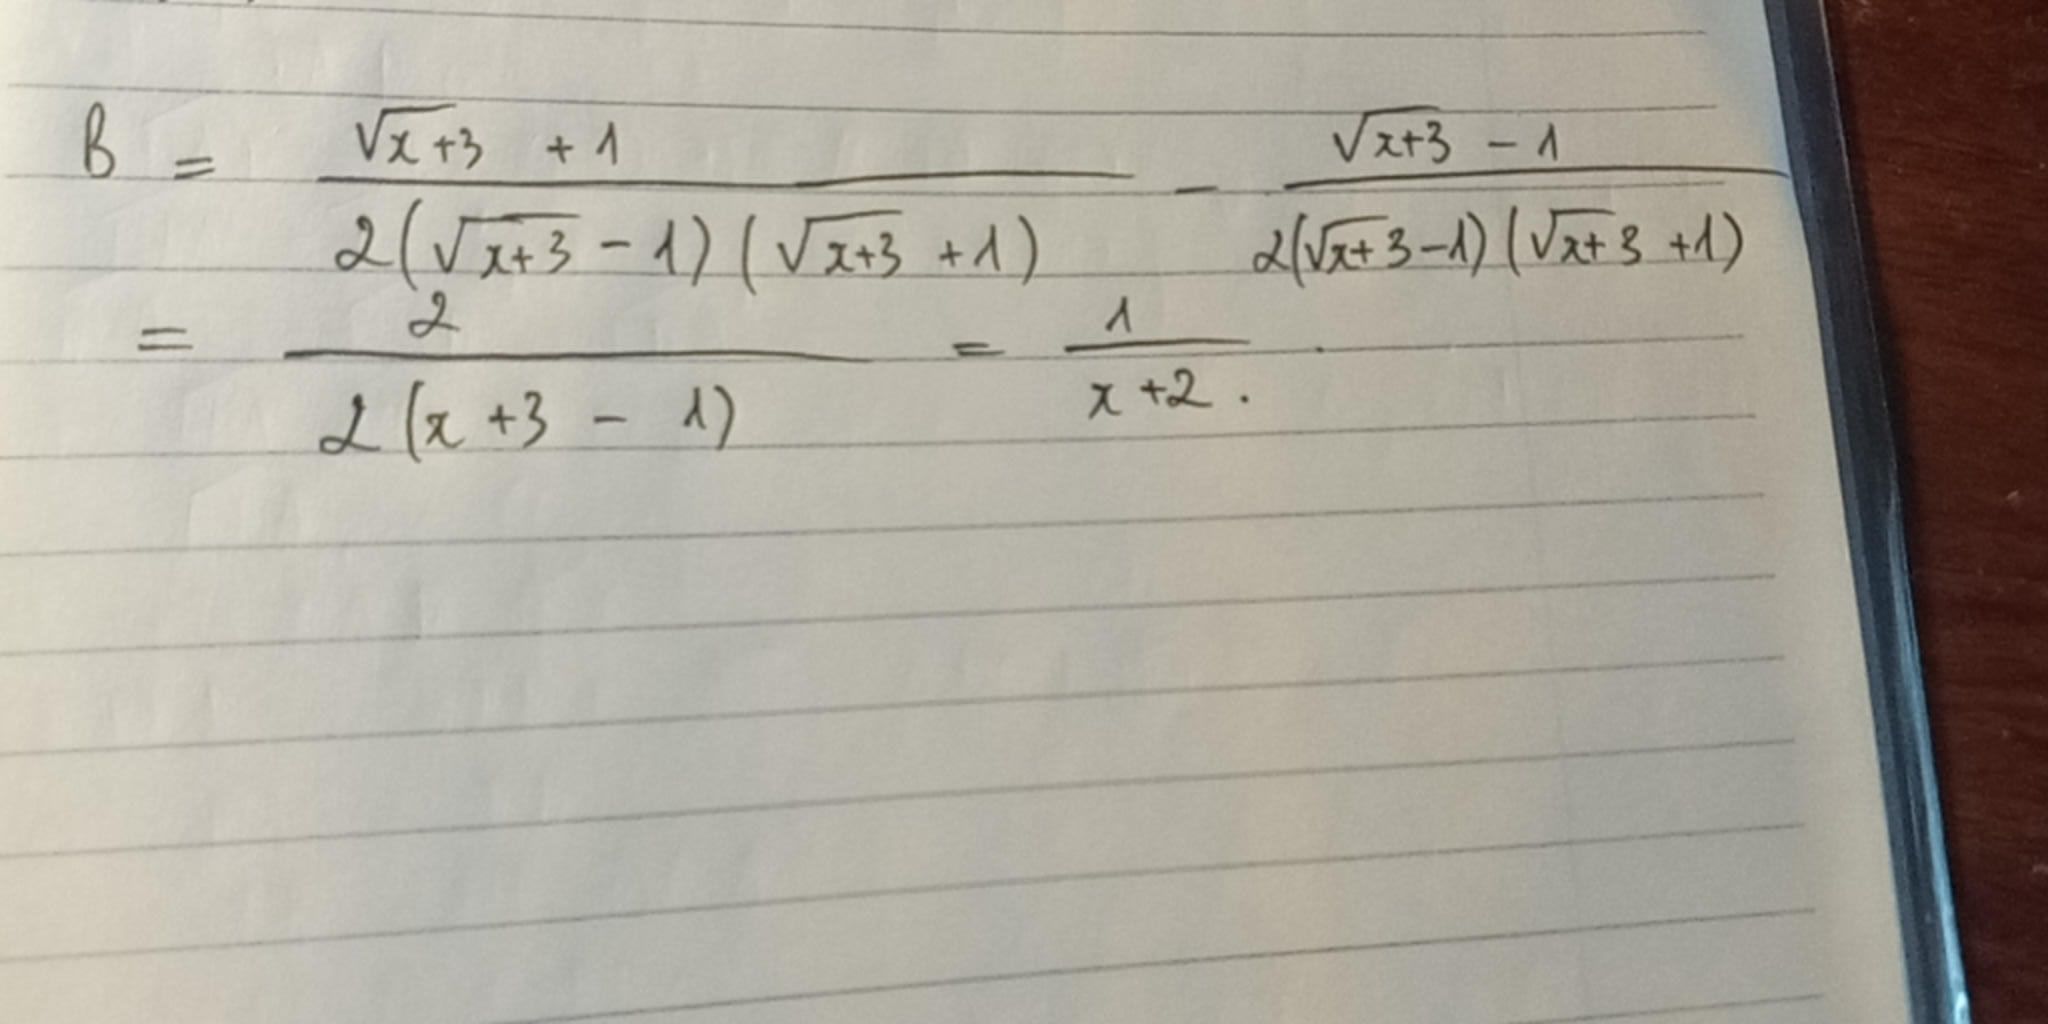 B = \frac{\sqrt{x+3} + 1}{2(\sqrt{x+3} - 1)(\sqrt{x+3} + 1)} - \frac{\sqrt{x+3} - 1}{2(\sqrt{x+3} - 1)(\sqrt{x+3} + 1)}
= \frac{2}{2(x+3 - 1)} = \frac{1}{x+2}.